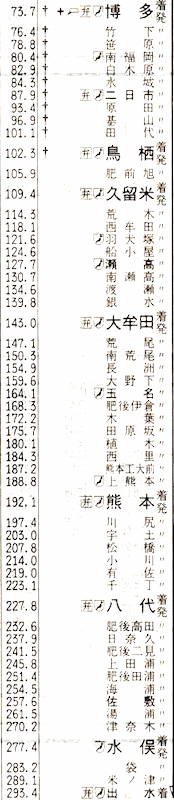 73.7 † 弁 博多 着発
76.4 † 竹下 〃
78.8 † 笹原 〃
80.4 † 南福岡 〃
82.9 白木原 〃
84.3 水城 〃
87.9 弁 二日市 〃
93.4 原田 〃
96.9 基山 〃
101.1 田代 〃
102.3 † 弁 鳥栖 着発
105.9 肥前旭 〃
109.4 弁 久留米 着発
114.3 荒木 〃
118.1 西牟田 〃
121.6 羽犬塚 〃
124.6 船小屋 〃
127.7 瀬高 〃
130.7 南瀬高 〃
134.6 渡瀬 〃
139.8 銀水 〃
143.0 弁 大牟田 着発
147.1 荒尾 〃
150.3 南荒尾 〃
154.9 長洲 〃
159.6 大野下 〃
164.1 玉名 〃
168.3 肥後伊倉 〃
172.2 木葉 〃
175.7 田原坂 〃
180.1 植木 〃
184.3 西里 〃
187.2 熊本工大前 〃
188.8 上熊本 〃
192.1 弁 熊本 着発
197.4 川尻 〃
203.0 宇土 〃
207.8 松橋 〃
214.0 小川 〃
219.0 有佐 〃
223.1 千丁 〃
227.8 弁 八代 着発
232.6 肥後高田 〃
237.9 日奈久 〃
241.5 肥後二見 〃
245.8 上田浦 〃
251.4 肥後田浦 〃
254.5 海浦 〃
257.6 佐敷 〃
261.5 湯浦 〃
270.2 津奈木 〃
277.4 水俣 着発
283.2 袋 〃
289.1 米ノ津 〃
293.4 弁 出水 着